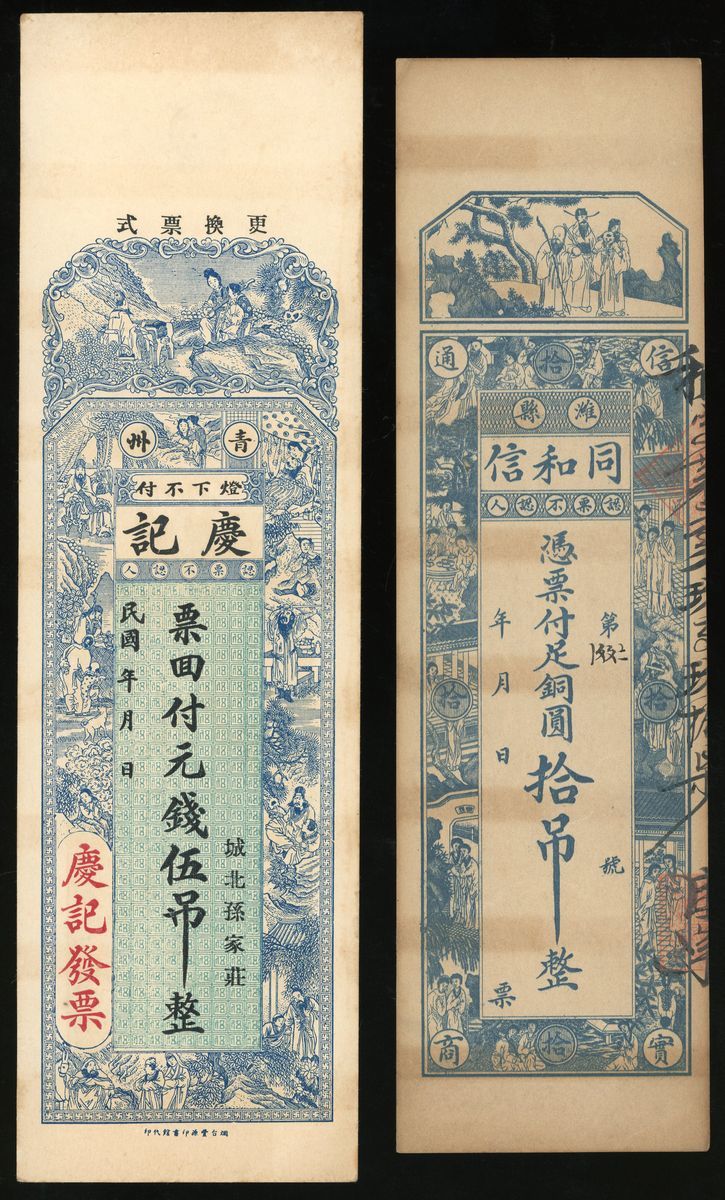 更換票式
青州
燈下不付
慶記
認票不認人
城北孫家莊
票回付元錢伍吊整
民國 年 月 日
慶記發票
烟台豐源印書館代印
拾
信通
濰縣
同和信
認票不認人
第
號
憑票付足銅圓拾吊整
年 月 日
票
拾
拾
實商
拾